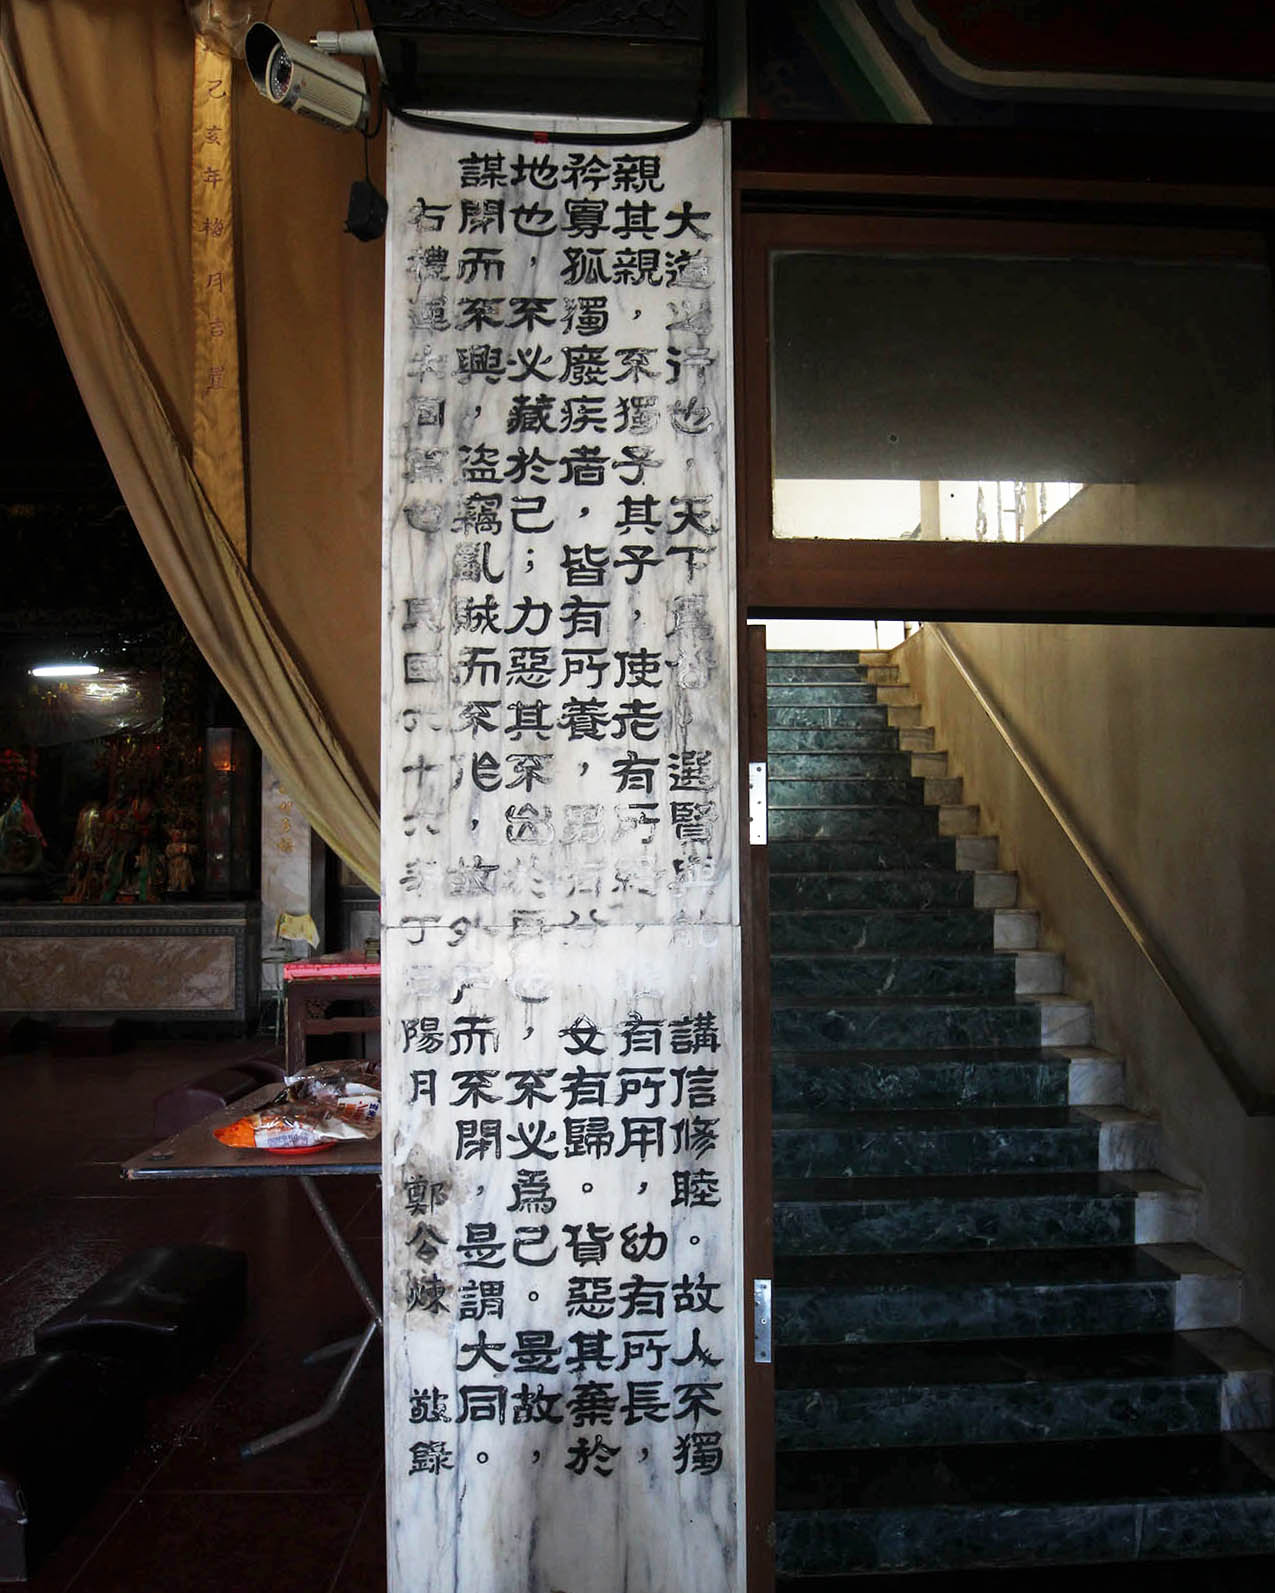 大道之行也，天下爲公，選賢與能，講信修睦。故人不獨
親其親，不獨子其子，使老有所終，壯有所用，幼有所長，
矜寡孤獨廢疾者，皆有所養，男有分，女有歸。貨惡其棄於
地也，不必藏於己；力惡其不出於身也，不必爲己。是故，
謀閉而不興，盜竊亂賊而不作，故外戶而不閉，是謂大同。
右禮運大同篇也 民國六十六年丁巳陽月 鄭公煉 敬錄
乙亥年梅月吉置